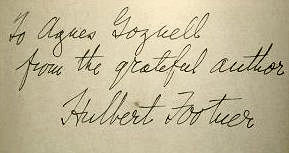 To Agnes Goznell
from the grateful author
Hulbert Footner